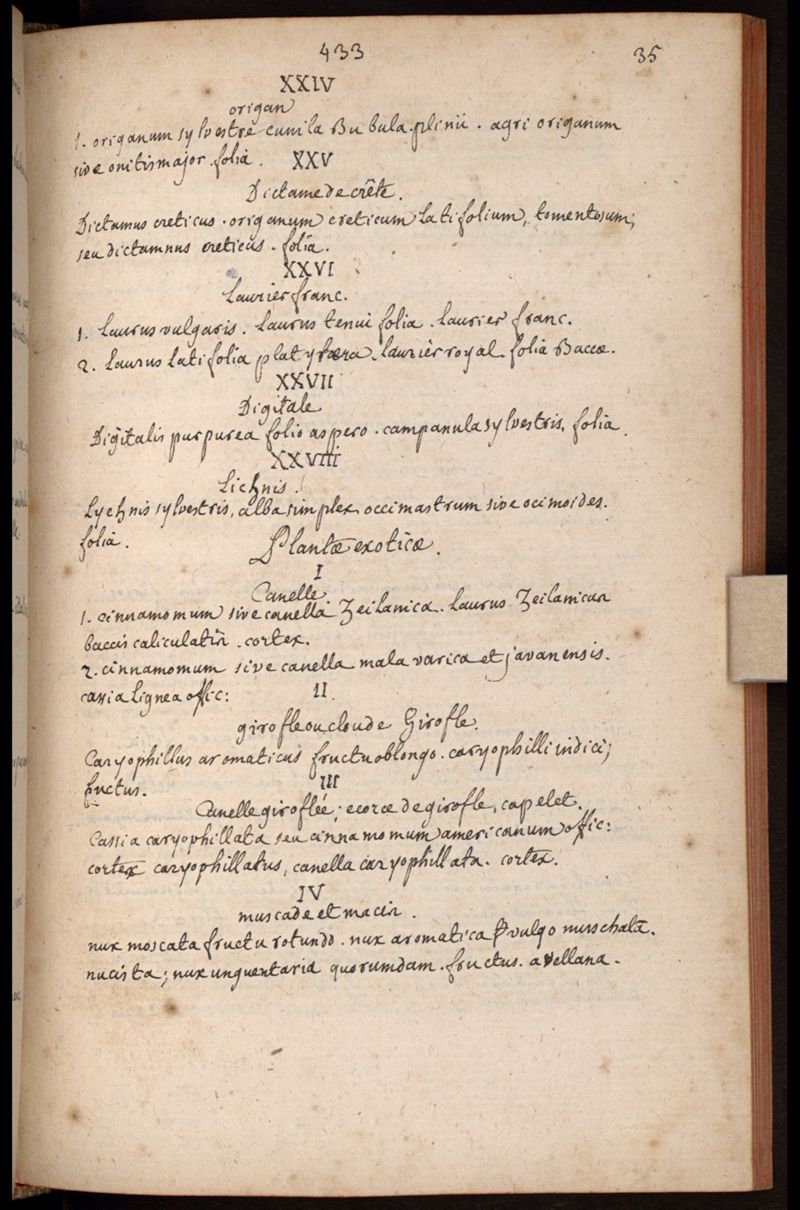 433 35
XXIV
origan
1. origanum sylvestre cunila Bubula plinii. agri origanum
sive onitis major. folia. XXV
Dictame de crête.
Dictamus creticus. origanum creticum latifolium, tomentosum;
seu dictamnus creticus. folia.
XXVI
Laurier franc.
1. Laurus vulgaris. Laurus tenui folia. laurier franc.
2. Laurus Latifolia platytæra. laurier royal. folia Baccæ.
XXVII
Digitale
Digitalis purpurea folio aspero. campanula sylvestris. folia.
XXVIII
Lichnis.
Lychnis sylvestris, alba simplex occimastrum sive ocimoides.
folia.
Plantæ exoticæ.
I
Canelle
1. cinnamomum sive canella Zeilanica. Laurus Zeilanican
baccis caliculatis. cortex.
2. cinnamomum sive canella malavarica et javanensis.
cassia lignea offic:
II.
girofle ou cloude Girofle.
Caryophillus aromaticus fructu oblongo. caryophilli indici;
fructus.
III
Canelle giroflée; ecorce de girofle, capelet.
Cassia caryophillata seu cinnamomum americanum offic:
cortex caryophillatus, canella caryophillata. cortex.
IV
muscade et macin.
nux moscata fructu rotundo. nux aromatica vulgo muschata.
nucista; nux unguentaria quorumdam. fructus. avellana.